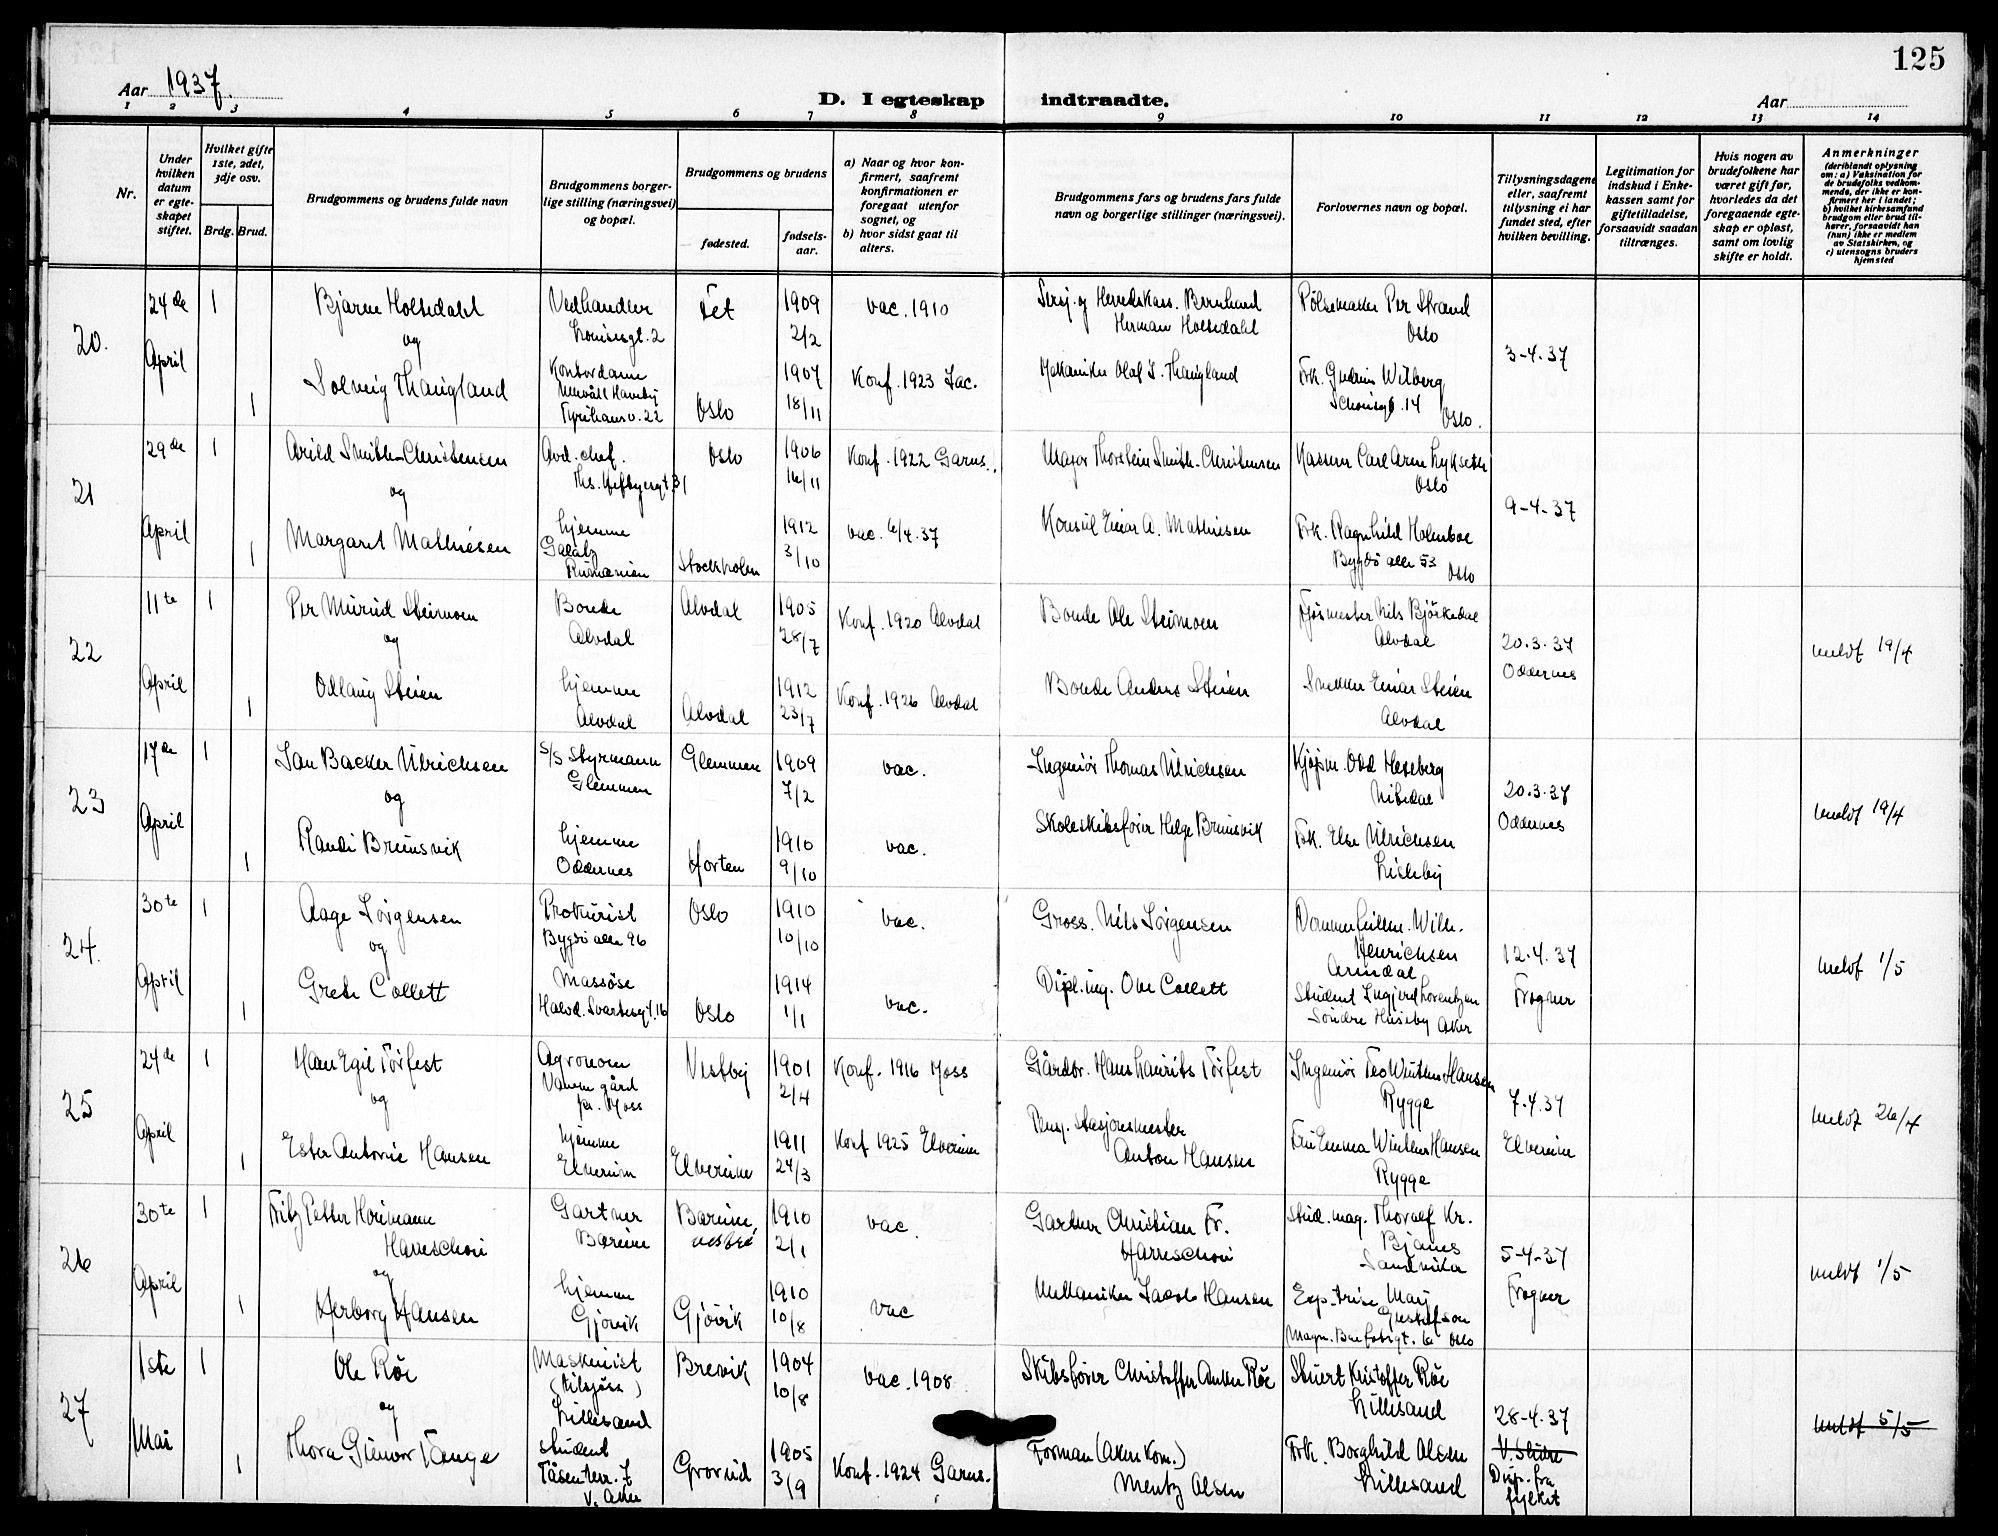 125
Aar 1937.
D. I egteskap indtraadte.
Aar
1 2 3 4 5 6 7 8 9 10 11 12 13 14
Nr.
Under hvilken datum er egteskapet stiftet.
Hvilket gifte 1ste, 2det, 3dje osv.
Brdg. Brud.
Brudgommens og brudens fulde navn
Brudgommens borgerlige stilling (næringsvei) og bopæl.
Brudgommens og brudens
fødested.
fødselsaar.
a) Naar og hvor konfirmert, saafremt konfirmationen er foregaat utenfor sognet, og
b) hvor sidst gaat til alters.
Brudgommens fars og brudens fars fulde navn og borgerlige stillinger (næringsvei).
Forlovernes navn og bopæl.
Tillysningsdagene eller, saafremt tillysning ei har fundet sted, efter hvilken bevilling.
Legitimation for indskud i Enkekassen samt for giftetilladelse, forsaavidt saadan tiltrænges.
Hvis nogen av brudefolkene har været gift før, hvorledes da det foregaaende egteskap er opløst, samt om lovlig skifte er holdt.
Anmerkninger
(deriblandt oplysning om: a) Vaksination for de brudefolks vedkommende, der ikke er konfirmert her i landet;
b) hvilket kirkesamfund brudgom eller brud tilhører, forsaavidt han (hun) ikke er medlem av Statskirken, og
c) utensogns bruders hjemsted
20.
24de April
1
Bjarne Holtsdahl
og
Solveig Thaugland
1
Vedhandler
Louisesgt. 2
Kontordame
Ullevåll Haveby
Tyrihansv. 22
Fet
Oslo
1909
2/2
1907
18/11
vac. 1910
Konf. 1923 Jac.
Sersj. og Herredskass. Bernhard
Herman Holtsdahl
Mekaniker Olaf S. Thaugland
Pölsemaker Per Strand
Oslo
Frk. Gudrun Wiberg
14
Oslo.
3-4-37
21
29de April
1
Arild Smith-Christensen
og
Margaret Mathiesen
1
Avd. chef.
Ths. Heftyesgt. 31
hjemme
Galatz
Rumænien
Oslo
Stockholm
1906
16/11
1912
3/10
Konf. 1922 Garns.
vac. 6/4.37
Major Thorstein Smith-Christensen
Konsul Einar A. Mathiesen
Kasserer Carl Arne Lykseth
Oslo
Frk. Ragnhild Holmboe
Bygdö alle 53
Oslo
9-4-37
22
11te April
1
Per Murud Steimoen
og
Odlaug Steien
1
Bonde
Alvdal
hjemme
Alvdal
Alvdal
Alvdal
1905
28/7
1912
23/7
Konf. 1920 Alvdal
Konf. 1926 Alvdal
Bonde Ole Steimoen
Bonde Anders Steien
Fjösmester Nils Björkedal
Alvdal
Snekker Einar Steien
Alvdal
20.3.37
Oddernes
meldt 19/4
23
17de April
1
Jan Backer Ulrichsen
og
Randi Brunsvik
1
S/S Styrmann
Glemmen
hjemme
Oddernes
Glemmen
Horten
1909
7/2
1910
9/10
vac.
vac.
Ingeniör Thomas Ulrichsen
Skoleskibsförer Helge Brunsvik
Kjöpm. Odd Heseberg
Nitedal
Frk. Else Ulrichsen
Lisleby
20.3.37
Oddernes
meldt 19/4
24.
30te April
1
Aage Jörgensen
og
Grete Collett
1
Prokurist
Bygdö alle 96
Massöse
Halvd. Svartesgt. 16
Oslo
Oslo
1910
10/10
1914
1/1
vac.
vac.
Gross. Nils Jörgensen
Dipl.ing. Ove Collett
Dommerfullm. Wilh.
Henrichsen
Arendal
Student Ingjerd Lorentzen
Söndre Huseby Aker
12-4.37
Frogner
meldt 1/5
25
24de April
1
Hans Egil Törfest
og
Ester Antonie Hansen
1
Agronom
Vanem gård
pr. Moss
hjemme
Elverum
Vestby
Elverum
1901
2/4
1911
24/3
Konf. 1916 Moss
Konf 1925 Elverum
Gårdbr. Hans Laurits Törfest
Pensj. stasjonsmester
Anton Hansen
Ingeniör Winther Hansen
Rygge
Fru Emma Winther Hansen
Rygge
7.4.37
Elverum
meldt 26/4
26
30te April
1
Fritz Petter Heimann
Harreschou
og
Herborg Hansen
1
Gartner
Bærum
hjemme
Gjövik
Bærum,
vestre
Gjövik
1910
2/1
1910
10/8
vac.
vac
Gartner Christian Fr.
Harreschou
Mekaniker Jacob Hansen
Stud. mag. Thoralf Kr.
Bjanes
Sandvika
Exp.trise Mary
Gustafson
Magn. Barfotsgt. 6 Oslo
5-4-37
Frogner
meldt 1/5
27
1ste Mai
1
Ole Röe
og
Thora Gunvor Tange
1
Maskinist
(tilsjöss)
Lillesand
student
Tåsenterr. 7
V. Aker
Brevik
Grorud
1904
10/8
1905
3/9
vac. 1908
Konf. 1924 Garns.
Skibsförer Christoffer Anker Röe
Forman (Akers Kom.)
Mentz Olsen
Stuert Kristoffer Röe
Lillesand
Frk. Borghild Olsen
Lillesand
28-4.37
V. Slidre
Disp. fra
fylket
meldt 5/5